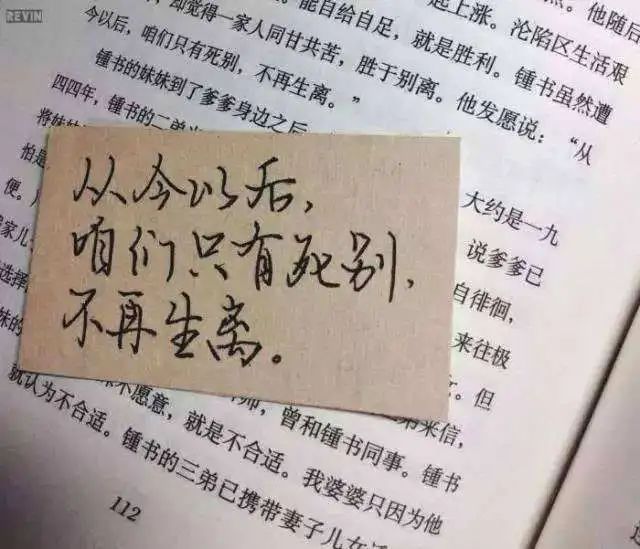 REVIN
起上涨。他随后
却觉得一家人同甘共苦,胜于别离。他发愿说:“从
能自给自足,就是胜利。锺书虽然遭
沦陷区生活艰
今以后,咱们只有死别,不再生离。”
锺书的妹妹到了爹爹身边之后
大约是一九
四四年,锺书的二弟
说爹爹已
将妹妹
自徘徊,
怕是
来往极
便。
但
家儿
选择
妹的
从今以后,
咱们只有死别,
不再生离。
来信,
不愿意,就是不合适。
曾和锺书同事。锺书
就认为不合适。锺书的三弟已携带妻子儿女
我婆婆只因为他
112